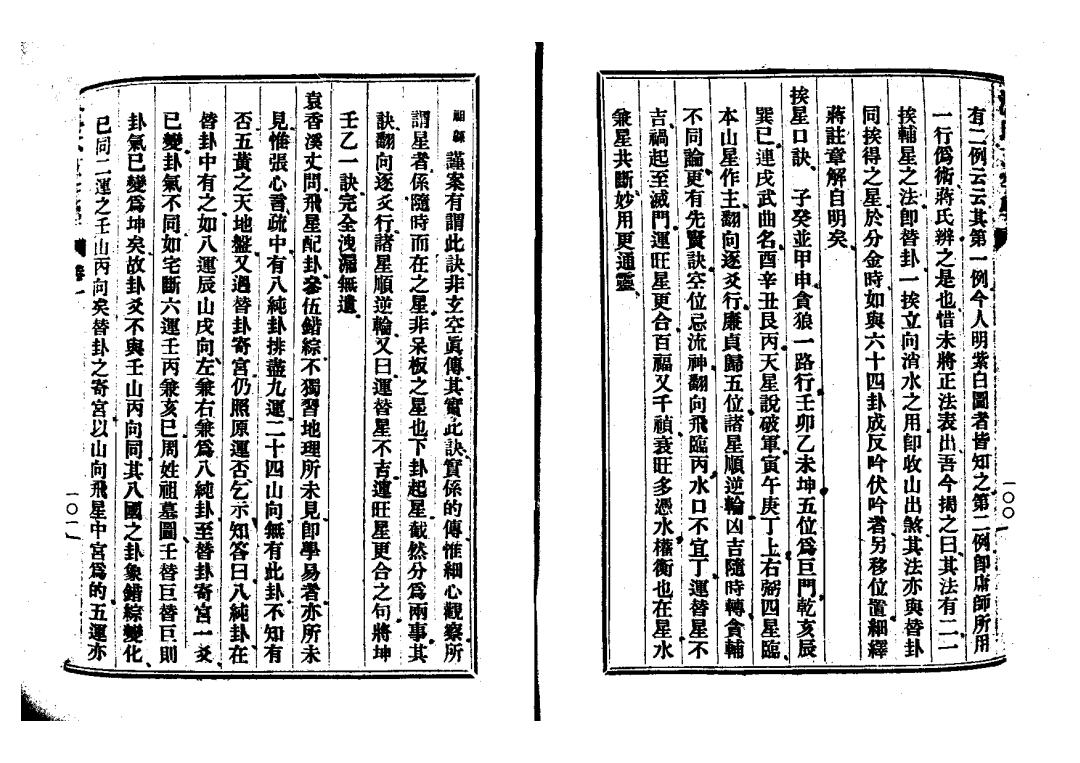 有二例云云其第一例今人明紫白圖者皆知之第二例卽庸師所用
一行僞術蔣氏辨之是也惜未將正法表出吾今揭之曰其法有二一
挨輔星之法卽替卦一挨立向消水之用卽收山出煞其法亦與替卦
同挨得之星於分金時如與六十四卦成反吟伏吟者另移位置細繹
蔣註章解自明矣
挨星口訣 子癸並甲申貪狼一路行壬卯乙未坤五位爲巨門乾亥辰
巽巳連戌武曲名酉辛丑艮丙天星說破軍寅午庚丁上右弼四星臨
本山星作主翻向逐爻行廉貞歸五位諸星順逆輪凶吉隨時轉貪輔
不同論更有先賢訣空位忌流神翻向飛臨丙水口不宜丁運替星不
吉禍起至滅門運旺星更合百福又千禎衰旺多憑水權衡也在星水
兼星共斷妙用更通靈
一〇〇
祖緜謹案有謂此訣非玄空眞傳其實此訣實係的傳惟細心觀察所
謂星者係隨時而在之星非呆板之星也下卦起星截然分爲兩事其
訣翻向逐爻行諸星順逆輪又曰運替星不吉運旺星更合之句將坤
壬乙一訣完全洩漏無遺
袁香溪丈問飛星配卦參伍錯綜不獨習地理所未見卽學易者亦所未
見惟張心言疏中有八純卦排盡九運二十四山向無有此卦不知有
否五黃之天地盤又過替卦寄宮仍照原運否乞示知答曰八純卦在
替卦中有之如八運辰山戌向左兼右兼爲八純卦至替卦寄宮一爻
已變卦氣不同如宅斷六運壬丙兼亥巳周姓祖墓圖壬替巨替巨則
卦氣已變爲坤矣故卦爻不與壬山丙向同其八國之卦象錯綜變化
已同二運之壬山丙向矣替卦之寄宮以山向飛星中宮爲的五運亦
一〇一